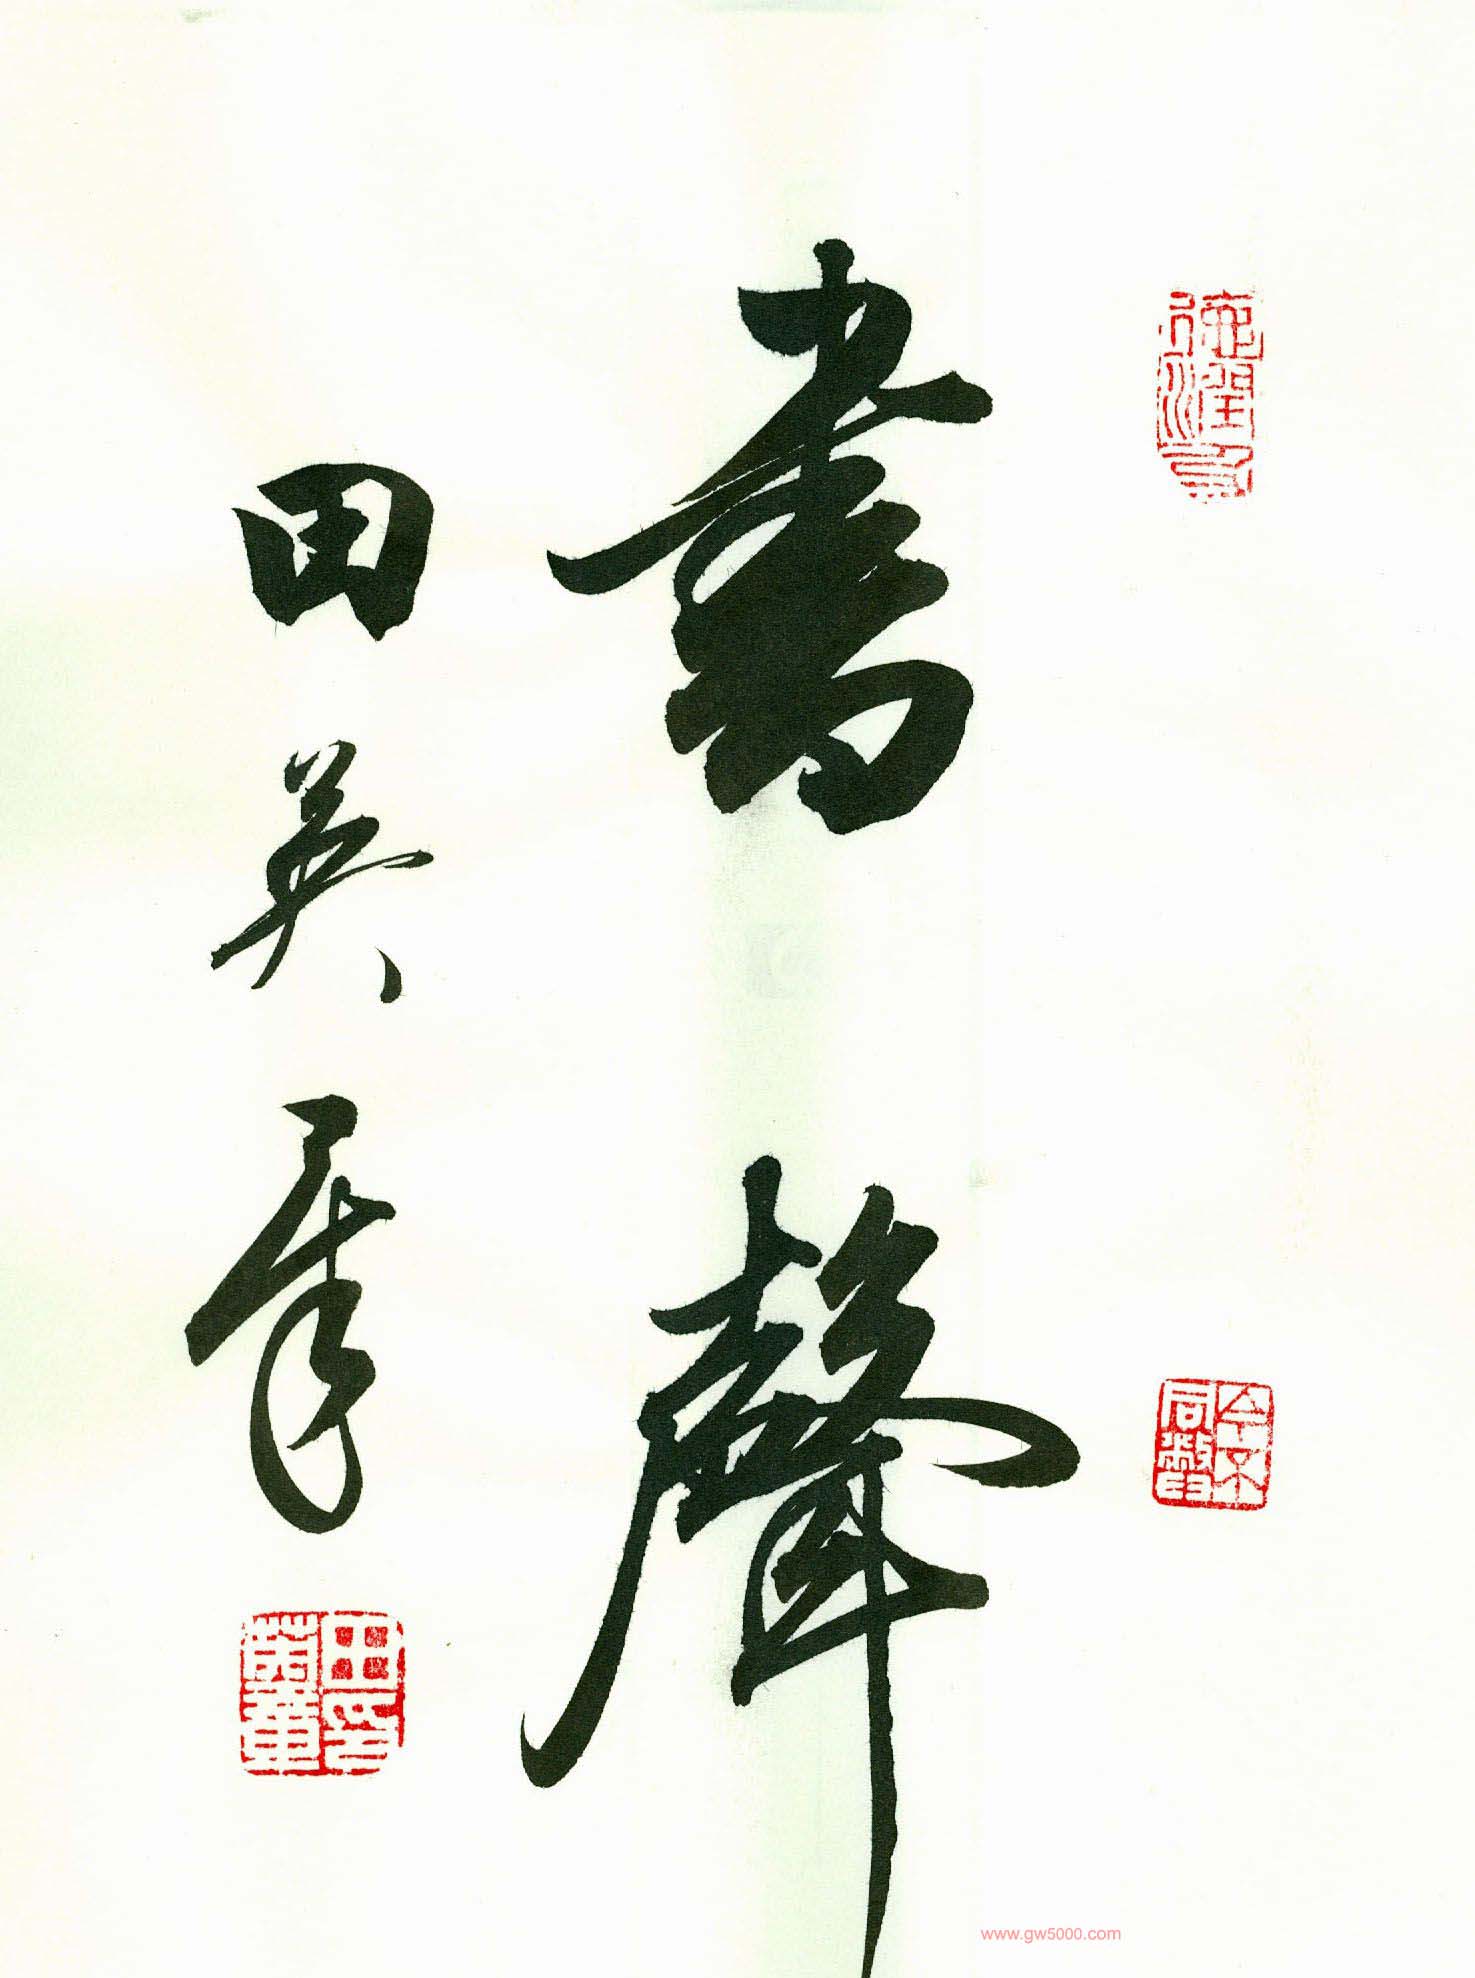 書聲
田英章
田英章印
www.gw5000.com